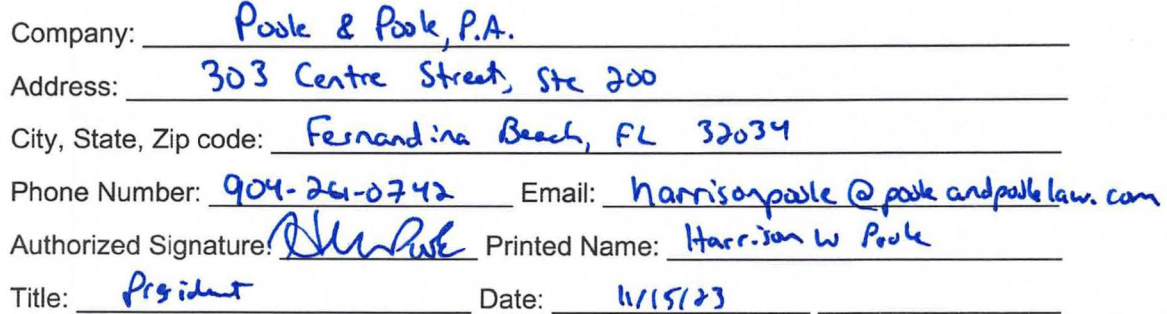 Company: Poole & Poole, P.A.
Address: 303 Centre Street, Ste 200
City, State, Zip code: Fernandina Beach, FL 32034
Phone Number: 904-261-0742 Email: harrisonpoole@pooleandpoolelaw.com
Authorized Signature: Printed Name: Harrison W Poole
Title: President Date: 11/15/23